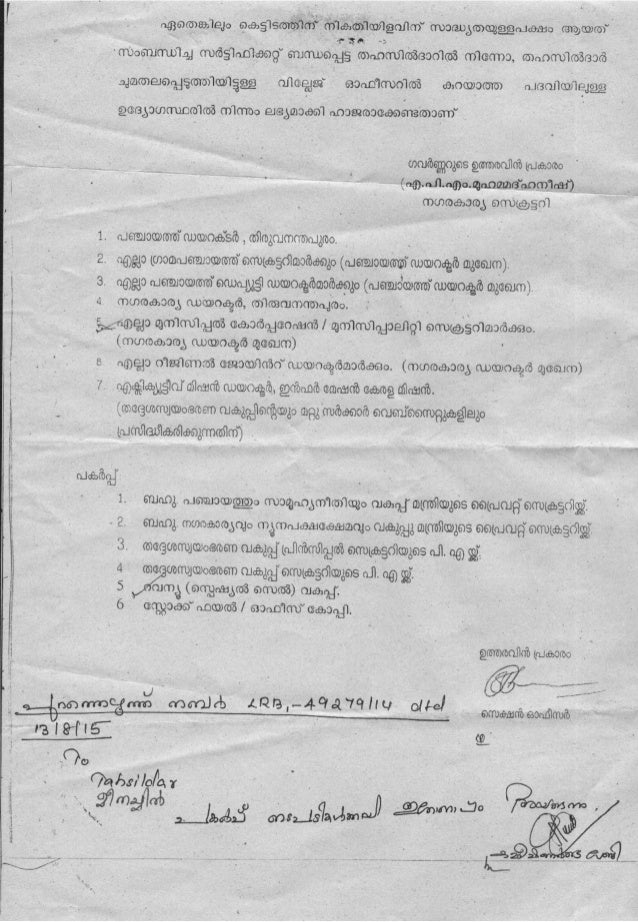 ഏതെങ്കിലും കെട്ടിടത്തിന് നികുതിയിളവിന് സാദ്ധ്യതയുള്ളപക്ഷം ആയത്
സംബന്ധിച്ച സർട്ടിഫിക്കറ്റ് ബന്ധപ്പെട്ട തഹസിൽദാറിൽ നിന്നോ, തഹസിൽദാർ
ചുമതലപ്പെടുത്തിയിട്ടുള്ള വില്ലേജ് ഓഫീസറിൽ കുറയാത്ത പദവിയിലുള്ള
ഉദ്യോഗസ്ഥരിൽ നിന്നും ലഭ്യമാക്കി ഹാജരാക്കേണ്ടതാണ്
ഗവർണ്ണറുടെ ഉത്തരവിൻ പ്രകാരം
(എ.പി.എം.മുഹമ്മദ്ഹനീഷ്)
നഗരകാര്യ സെക്രട്ടറി
1. പഞ്ചായത്ത് ഡയറക്ടർ , തിരുവനന്തപുരം.
2. എല്ലാ ഗ്രാമപഞ്ചായത്ത് സെക്രട്ടറിമാർക്കും (പഞ്ചായത്ത് ഡയറക്ടർ മുഖേന).
3. എല്ലാ പഞ്ചായത്ത് ഡെപ്യൂട്ടി ഡയറക്ടർമാർക്കും (പഞ്ചായത്ത് ഡയറക്ടർ മുഖേന).
4. നഗരകാര്യ ഡയറക്ടർ, തിരുവനന്തപുരം.
5. എല്ലാ മുനിസിപ്പൽ കോർപ്പറേഷൻ / മുനിസിപ്പാലിറ്റി സെക്രട്ടറിമാർക്കും.
(നഗരകാര്യ ഡയറക്ടർ മുഖേന)
6. എല്ലാ റീജിണൽ ജോയിൻറ് ഡയറക്ടർമാർക്കും. (നഗരകാര്യ ഡയറക്ടർ മുഖേന)
7. എക്സിക്യുട്ടീവ് മിഷൻ ഡയറക്ടർ, ഇൻഫർ മേഷൻ കേരള മിഷൻ.
(തദ്ദേശസ്വയംഭരണ വകുപ്പിന്റെയും മറ്റു സർക്കാർ വെബ്സൈറ്റുകളിലും
പ്രസിദ്ധീകരിക്കുന്നതിന്)
പകർപ്പ്
1. ബഹു. പഞ്ചായത്തും സാമൂഹ്യനീതിയും വകുപ്പ് മന്ത്രിയുടെ പ്രൈവറ്റ് സെക്രട്ടറിയ്ക്ക്.
2. ബഹു. നഗരകാര്യവും ന്യൂനപക്ഷക്ഷേമവും വകുപ്പു മന്ത്രിയുടെ പ്രൈവറ്റ് സെക്രട്ടറിയ്ക്ക്.
3. തദ്ദേശസ്വയംഭരണ വകുപ്പ് പ്രിൻസിപ്പൽ സെക്രട്ടറിയുടെ പി. എ യ്ക്ക്.
4 തദ്ദേശസ്വയംഭരണ വകുപ്പ് സെക്രട്ടറിയുടെ പി. എ യ്ക്ക്.
5 റവന്യൂ (സ്പെഷ്യൽ സെൽ) വകുപ്പ്.
6 സ്റ്റോക്ക് ഫയൽ / ഓഫീസ് കോപ്പി.
ഉത്തരവിൻ പ്രകാരം
സെക്ഷൻ ഓഫീസർ
പുറത്തെഴുത്ത് നമ്പർ LRB1-49279/14 dtd
13/8/15
To
Tahsildar
മീനച്ചിൽ
പകർപ്പ് നടപടികൾക്കായി ഇതോടൊപ്പം അയക്കുന്നു.